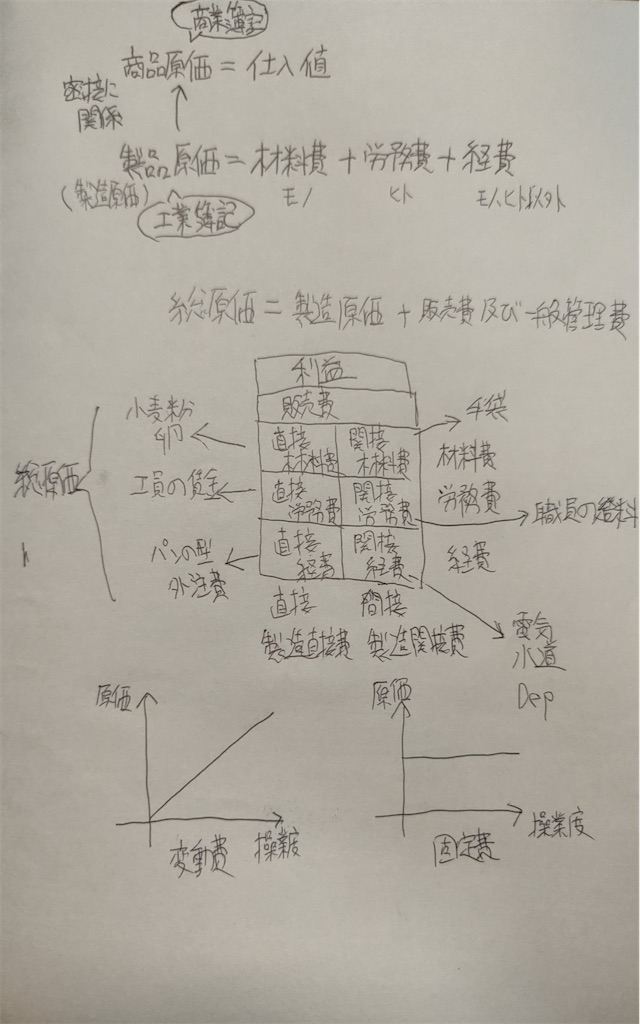 商業簿記
商品原価 = 仕入値
密接に
関係
製品原価 = 材料費 + 労務費 + 経費
(製造原価) モノ ヒト モノ、ヒト以外
工業簿記
総原価 = 製造原価 + 販売費及び一般管理費
利益
販売費
小麦粉
卵
直接
材料費
間接
材料費
手袋
材料費
総原価
工員の賃金
直接
労務費
間接
労務費
労務費
職員の給料
パンの型
外注費
直接
経費
間接
経費
経費
直接 間接
製造直接費 製造間接費
電気
水道
Dep
原価
変動費 操業度
原価
固定費 操業度